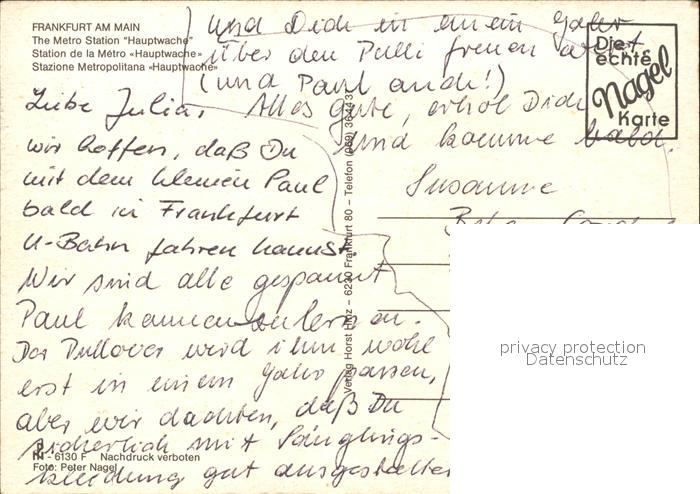 FRANKFURT AM MAIN
The Metro Station "Hauptwache"
Station de la Métro «Hauptwache»
Stazione Metropolitana «Hauptwache»
Liebe Julia,
wir hoffen, daß Du
mit dem kleinen Paul
bald in Frankfurt
U-Bahn fahren kannst.
Wir sind alle gespannt
Paul kennenzulernen.
Der Pullover wird ihm wohl
erst in einem Jahr passen,
aber wir dachten, daß Du
sicherlich mit Säuglings-
kleidung gut ausgestattet
und Dich in einem Jahr
über den Pulli freuen
(und Paul auch!)
Alles Gute, erhol Dich
und komme bald.
Susanne
Die
echte
Nagel
Karte
Verlag Horst Hinz – 6230 Frankfurt 80 – Telefon (069) 384437
- 6130 F Nachdruck verboten
Foto: Peter Nagel
privacy protection
Datenschutz